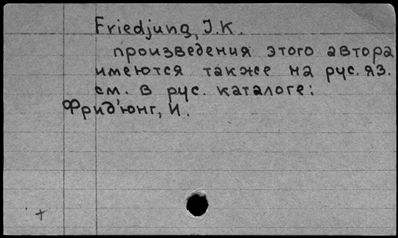 Friedjung, J.K.
произведения этого автора
имеются также на рус. яз.
см. в рус. каталоге:
Фридъюнг, И.
+